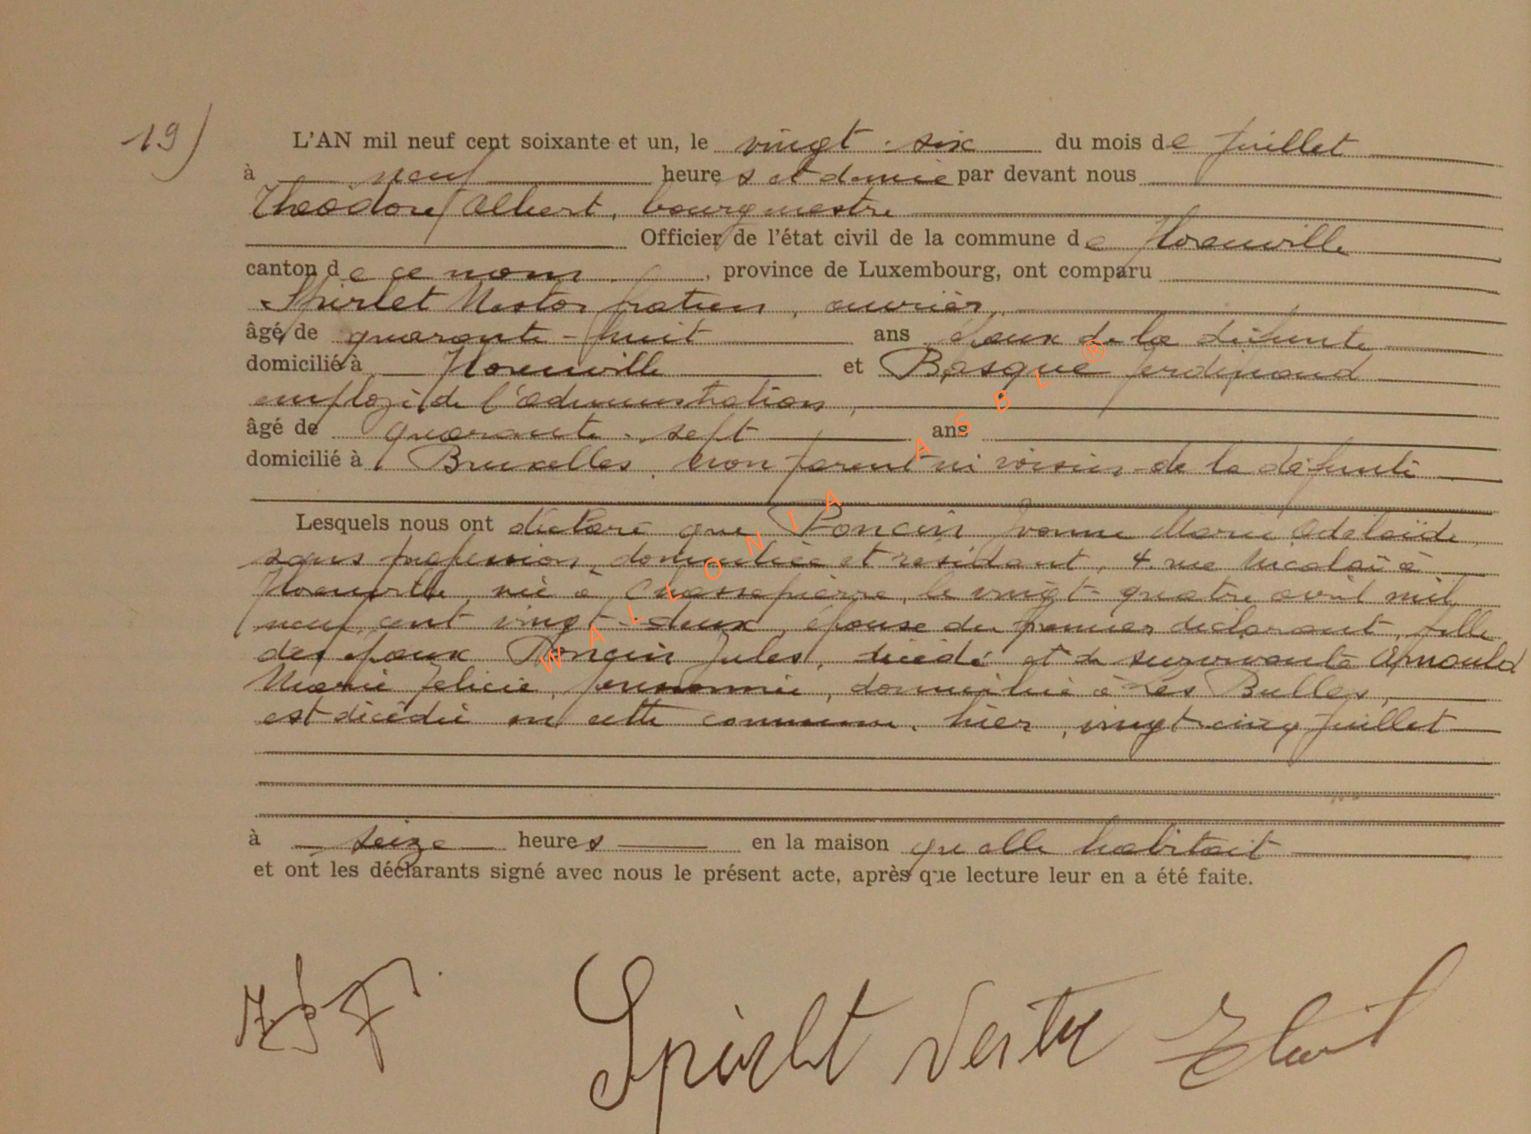 19)
L'AN mil neuf cent soixante et un, le vingt-six du mois de juillet
à neuf heures et demie par devant nous
Théodore Albert, bourgmestre
Officier de l'état civil de la commune de Florenville
canton de ce nom, province de Luxembourg, ont comparu
Spirlet Nestor Gratien, ouvrier,
âgé de quarante-huit ans époux de la défunte
domicilié à Florenville et Basque Ferdinand
employé de l'administration,
âgé de quarante-sept ans
domicilié à Bruxelles, non parent ni voisin de la défunte
Lesquels nous ont déclaré que Poncin Yvonne Marie Adelaïde,
sans profession, domiciliée et résidant, 4, rue Nicolaï à
Florenville, née à Chassepierre, le vingt-quatre avril mil
neuf cent vingt-deux, épouse du premier déclarant, fille
des époux Poncin Jules, décédé et de survivante Arnould
Marie Felicie, pensionnée, domiciliée à Les Bulles,
est décédée en cette commune, hier, vingt-cinq juillet
à seize heures en la maison qu'elle habitait
et ont les déclarants signé avec nous le présent acte, après que lecture leur en a été faite.
Spirlet Nestor
WALLONIA ASBL ®